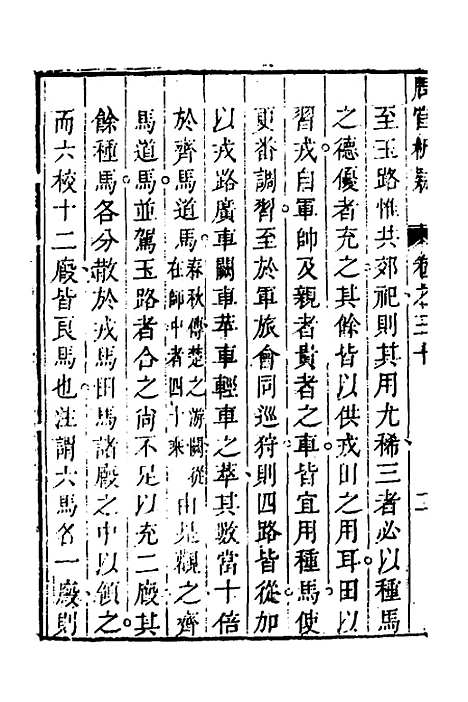 周官析疑 卷之三十 二
至玉路惟共郊祀則其用尤稀三者必以種馬
之德優者充之其餘皆以供戎田之用耳田以
習戎自軍帥及親者貴者之車皆宜用種馬使
更番調習至於軍旅會同巡狩則四路皆從加
以戎路廣車闕車苹車輕車之萃其數當十倍
於齊馬道馬春秋傳楚之游闕從在師中者四十乘由是觀之齊
馬道馬並駕玉路者合之尚不足以充二廄其
餘種馬各分散於戎馬田馬諸廄之中以領之
而六校十二廄皆良馬也注謂六馬各一廄則